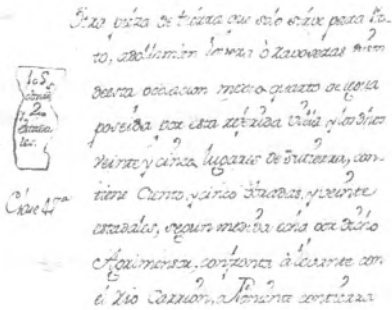 Otra pieza de tierra que solo sirve para
to, a la
de esta poblacion medio quarto de legua
poseida por esta referida Villa y los dichos
veinte y cinco lugares de su tierra, con-
tiene Ciento, y cinco obradas, y veinte
estadales, segun medida echa por dicho
Agrimensor, confronta à Levante con
el Rio Carrion, a Poniente con tierra
105
obradas
y 20
estada
les.
Clase 4ª